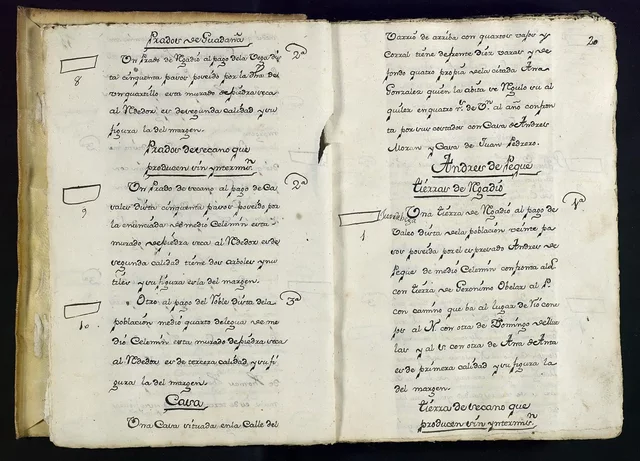 Prados de Guadaña
Un Prado de Rgadio al pago dela Vega dis 2ª
ta cinquenta pasos poseido por la dha. de
un quartillo esta murado de piedra seca
al Rdedor es de segunda calidad y su
figura la del margen.
8
Prados de secano que
producen sin yntermisn
Un Prado de secano al pago de Ca 2ª
vales dista cinquenta pasos poseido por
la enunciada de medio Celemin esta
murado de piedra seca al Rdedor es de
segunda calidad tiene dos arboles ynu
tiles y su figura es la del margen.
9
Otro al pago del Roble dista dela 3ª
poblacion medio quarto delegua de me
dio Celemin esta murado de piedra seca
al Rdedor es de tercera calidad y su fi
gura la del margen.
10
Casa
Una Casa situada en la Calle del
20
Varrio de arriba con quartos vajos y
Corral tiene de frente diez varas y de
fondo quatro propia de la citada Ana
Gonzalez quien la abita se Rgulo su al
quiler en quatro rs. de Vn. al año confron
ta por sus costados con Casa de Andres
Moran y Casa de Juan Pedrero.
Andres de Peque
tierras de Rgadio
Una tierra de Rgadio al pago de 1ª
Vales dista dela población veinte pa
sos poseida por el expresado Andres de
Peque de medio Celemin confronta al L.
con tierra de Geronimo Obelar al P.
con camino que ba al lugar de Rio con
pos al N. con otra de Domingo de
las y al S. con otra de Ana de Anta
es de primera calidad y su figura la
del margen.
1
tierra de secano que
producen sin yntermisn